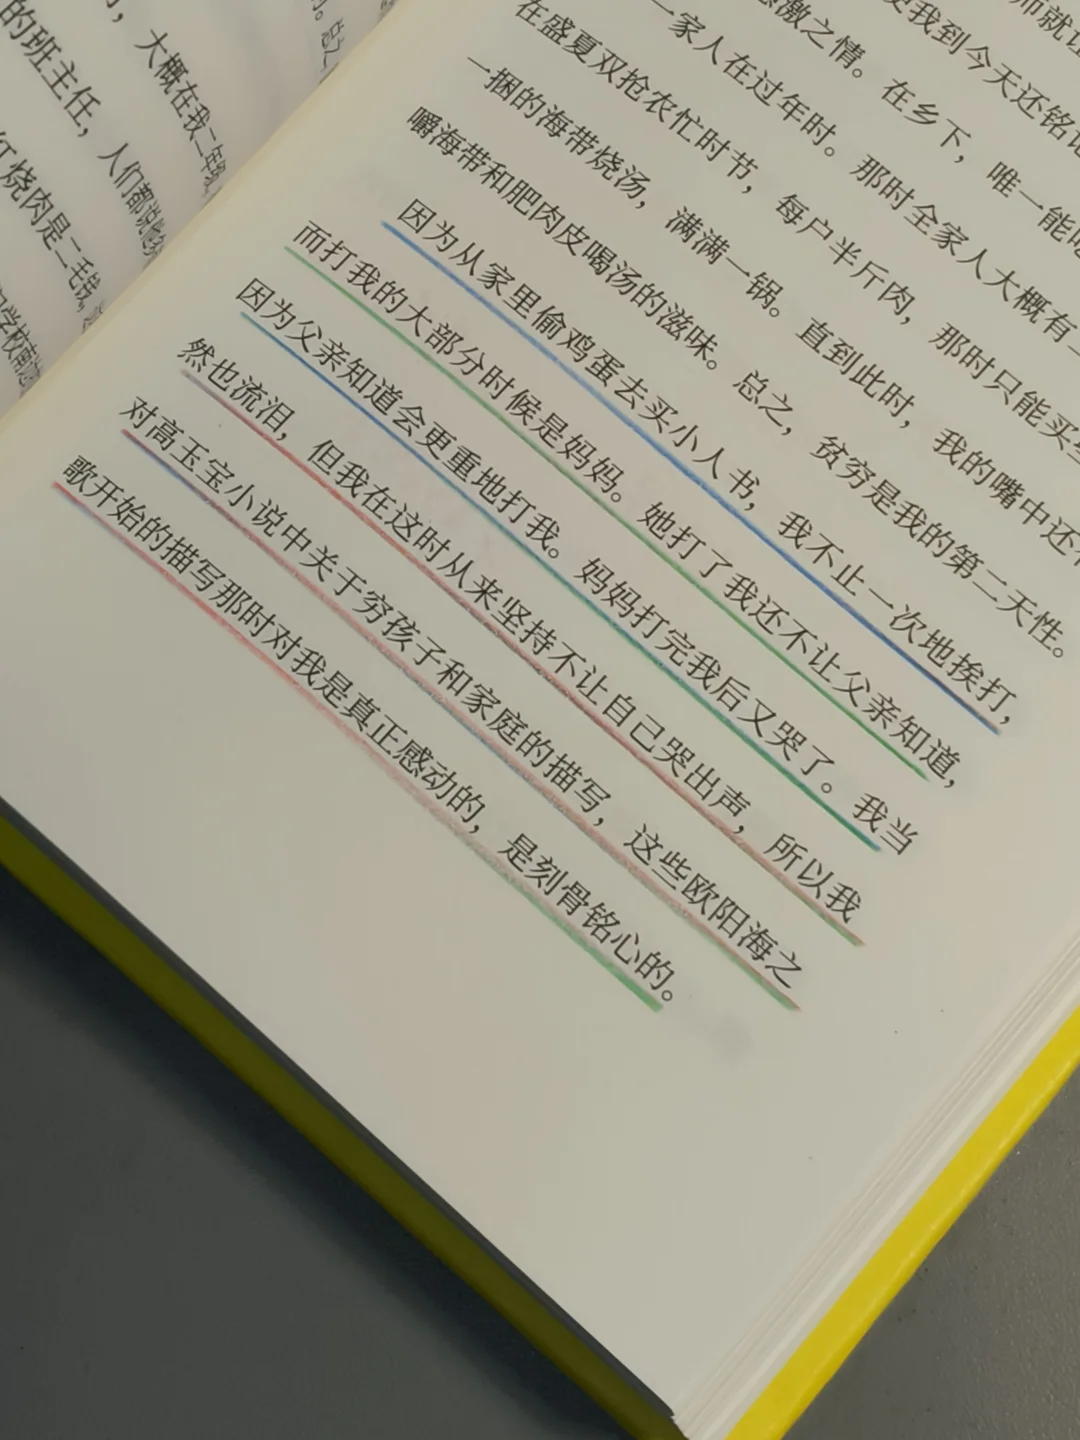 ，大概在我二年级
的班主任，人们都说他
红烧肉是二毛钱，
学校南
。总之
师就让
使我到今天还铭记
感激之情。在乡下，唯一能吃
一家人在过年时。那时全家人大概有二
在盛夏双抢农忙时节，每户半斤肉，那时只能买些
一捆的海带烧汤，满满一锅。直到此时，我的嘴中还有
嚼海带和肥肉皮喝汤的滋味。总之，贫穷是我的第二天性。
因为从家里偷鸡蛋去买小人书，我不止一次地挨打，
而打我的大部分时候是妈妈。她打了我还不让父亲知道，
因为父亲知道会更重地打我。妈妈打完我后又哭了。我当
然也流泪，但我在这时从来坚持不让自己哭出声，所以我
对高玉宝小说中关于穷孩子和家庭的描写，这些欧阳海之
歌开始的描写那时对我是真正感动的，是刻骨铭心的。